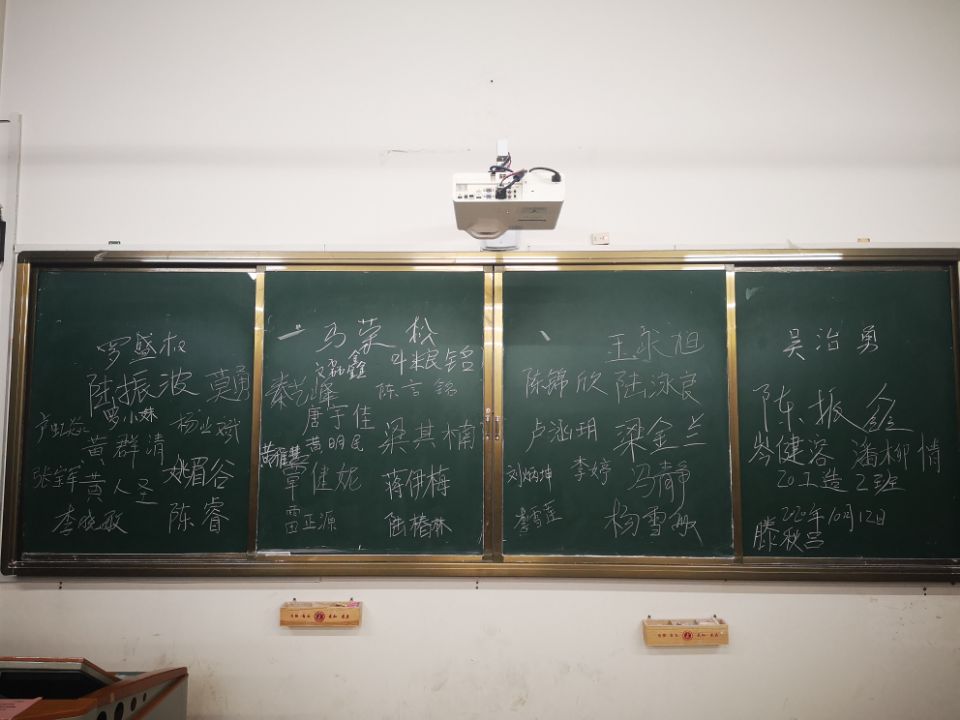 罗盛权
陆振波 莫勇
罗小妹
杨业斌
黄群清
姚眉谷
张钰军 黄人圣
李晓敏 陈睿
马荣松
文磊鑫 叶粽铭
秦艺峰 陈言铭
唐于佳
黄明民 梁其楠
覃佳妮 蒋伊梅
雷正源 陆椿林
王永旭
陈锦欣 陆泳良
卢涵玥 梁金兰
刘炳坤 李婷 冯静
李雪莲 杨雪敏
吴治勇
陈振鑫
岑健溶 潘柳情
20工造2班
2020年10月12日
滕秋吕